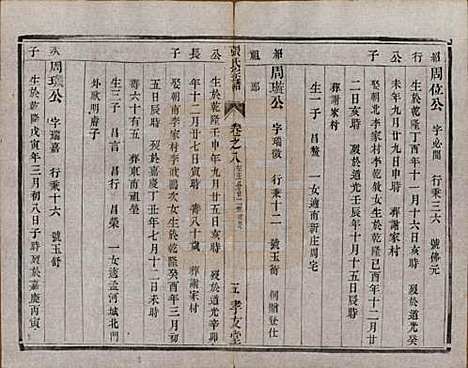 紹周位公 字必聞 行秉三六 號佛元
行 生於乾隆丁酉年十一月十六日亥時 歿於道光
公 未年九月廿九日申時 葬謝家村
娶朝北李家村李 女生於乾隆己酉年十二月廿
二日亥時 歿於道光壬辰年十月十五日辰時
葬謝家村
生一子 昌 一女適南新庄周宅
紹周璇公 字瑞徵 行秉十二 號玉衡 例贈登仕
郎
張氏宗譜 卷之八 五 孝友堂
公 生於乾隆壬申年九月廿五日辰時 歿於道光辛卯
長 年十二月廿七日寅時 壽八十歲 葬謝家村
子 娶朝南李家村李 次女生於乾隆癸酉年三月初
五日辰時 歿於嘉慶丁丑年七月十二日未時
壽六十有五 葬東南祖塋
生三子 昌言 昌 昌榮 一女適孟河城北門
外耿明
次周璣公 字瑞嘉 行秉十六 號玉衡
子 生於乾隆戊寅年三月初八日子時 歿於嘉慶丙寅